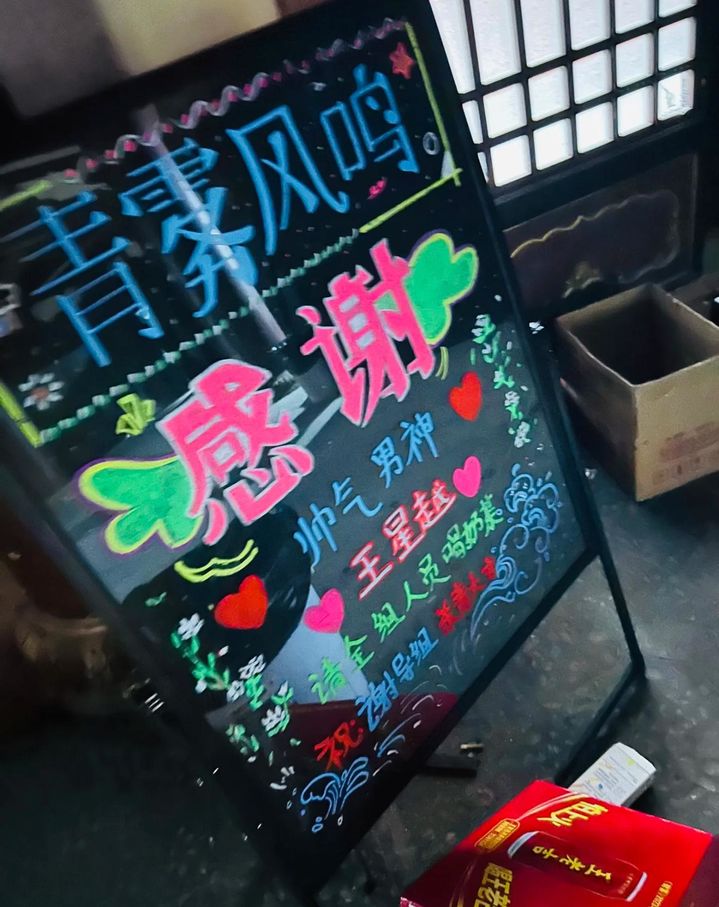 青雾风鸣
感谢
帅气男神
王星越
请全组人员喝奶茶
祝谢导组
王老吉